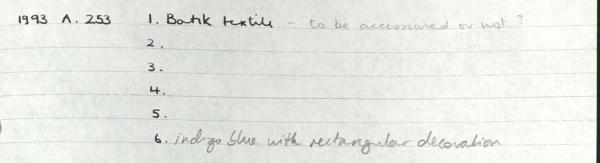 1993 A. 253 1. Batik textile - to be accessioned or not?
2.
3.
4.
5.
6. indigo blue with rectangular decoration